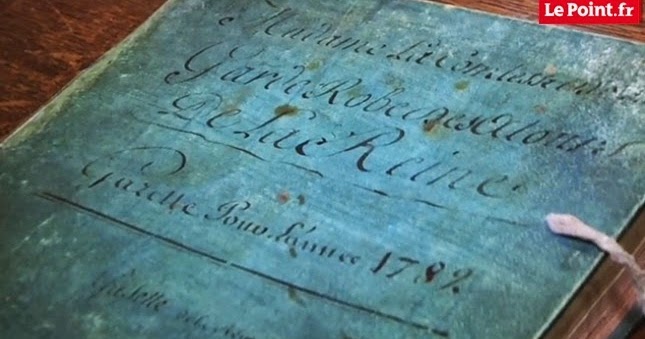 Le Point.fr
Madame La Comtesse
Garde Robe des atours
De La Reine.
Gazette Pour L'année 1782.